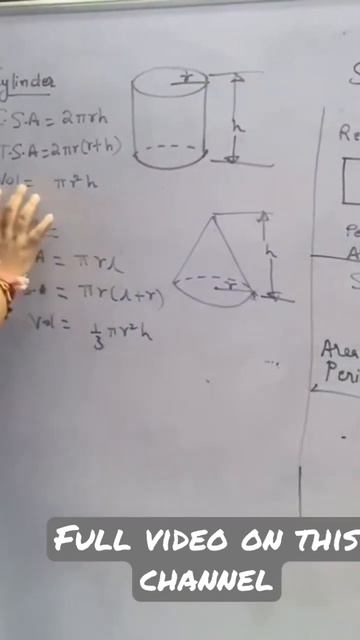 Cylinder
C.S.A = 2πrh
T.S.A = 2πr(r+h)
Vol = πr²h
r
h
=
A = πrl
S.A = πr(l+r)
Vol = 1/3 πr²h
r
h
S
Re
Pe
A
S
Area
Peri
FULL VIDEO ON THIS
CHANNEL